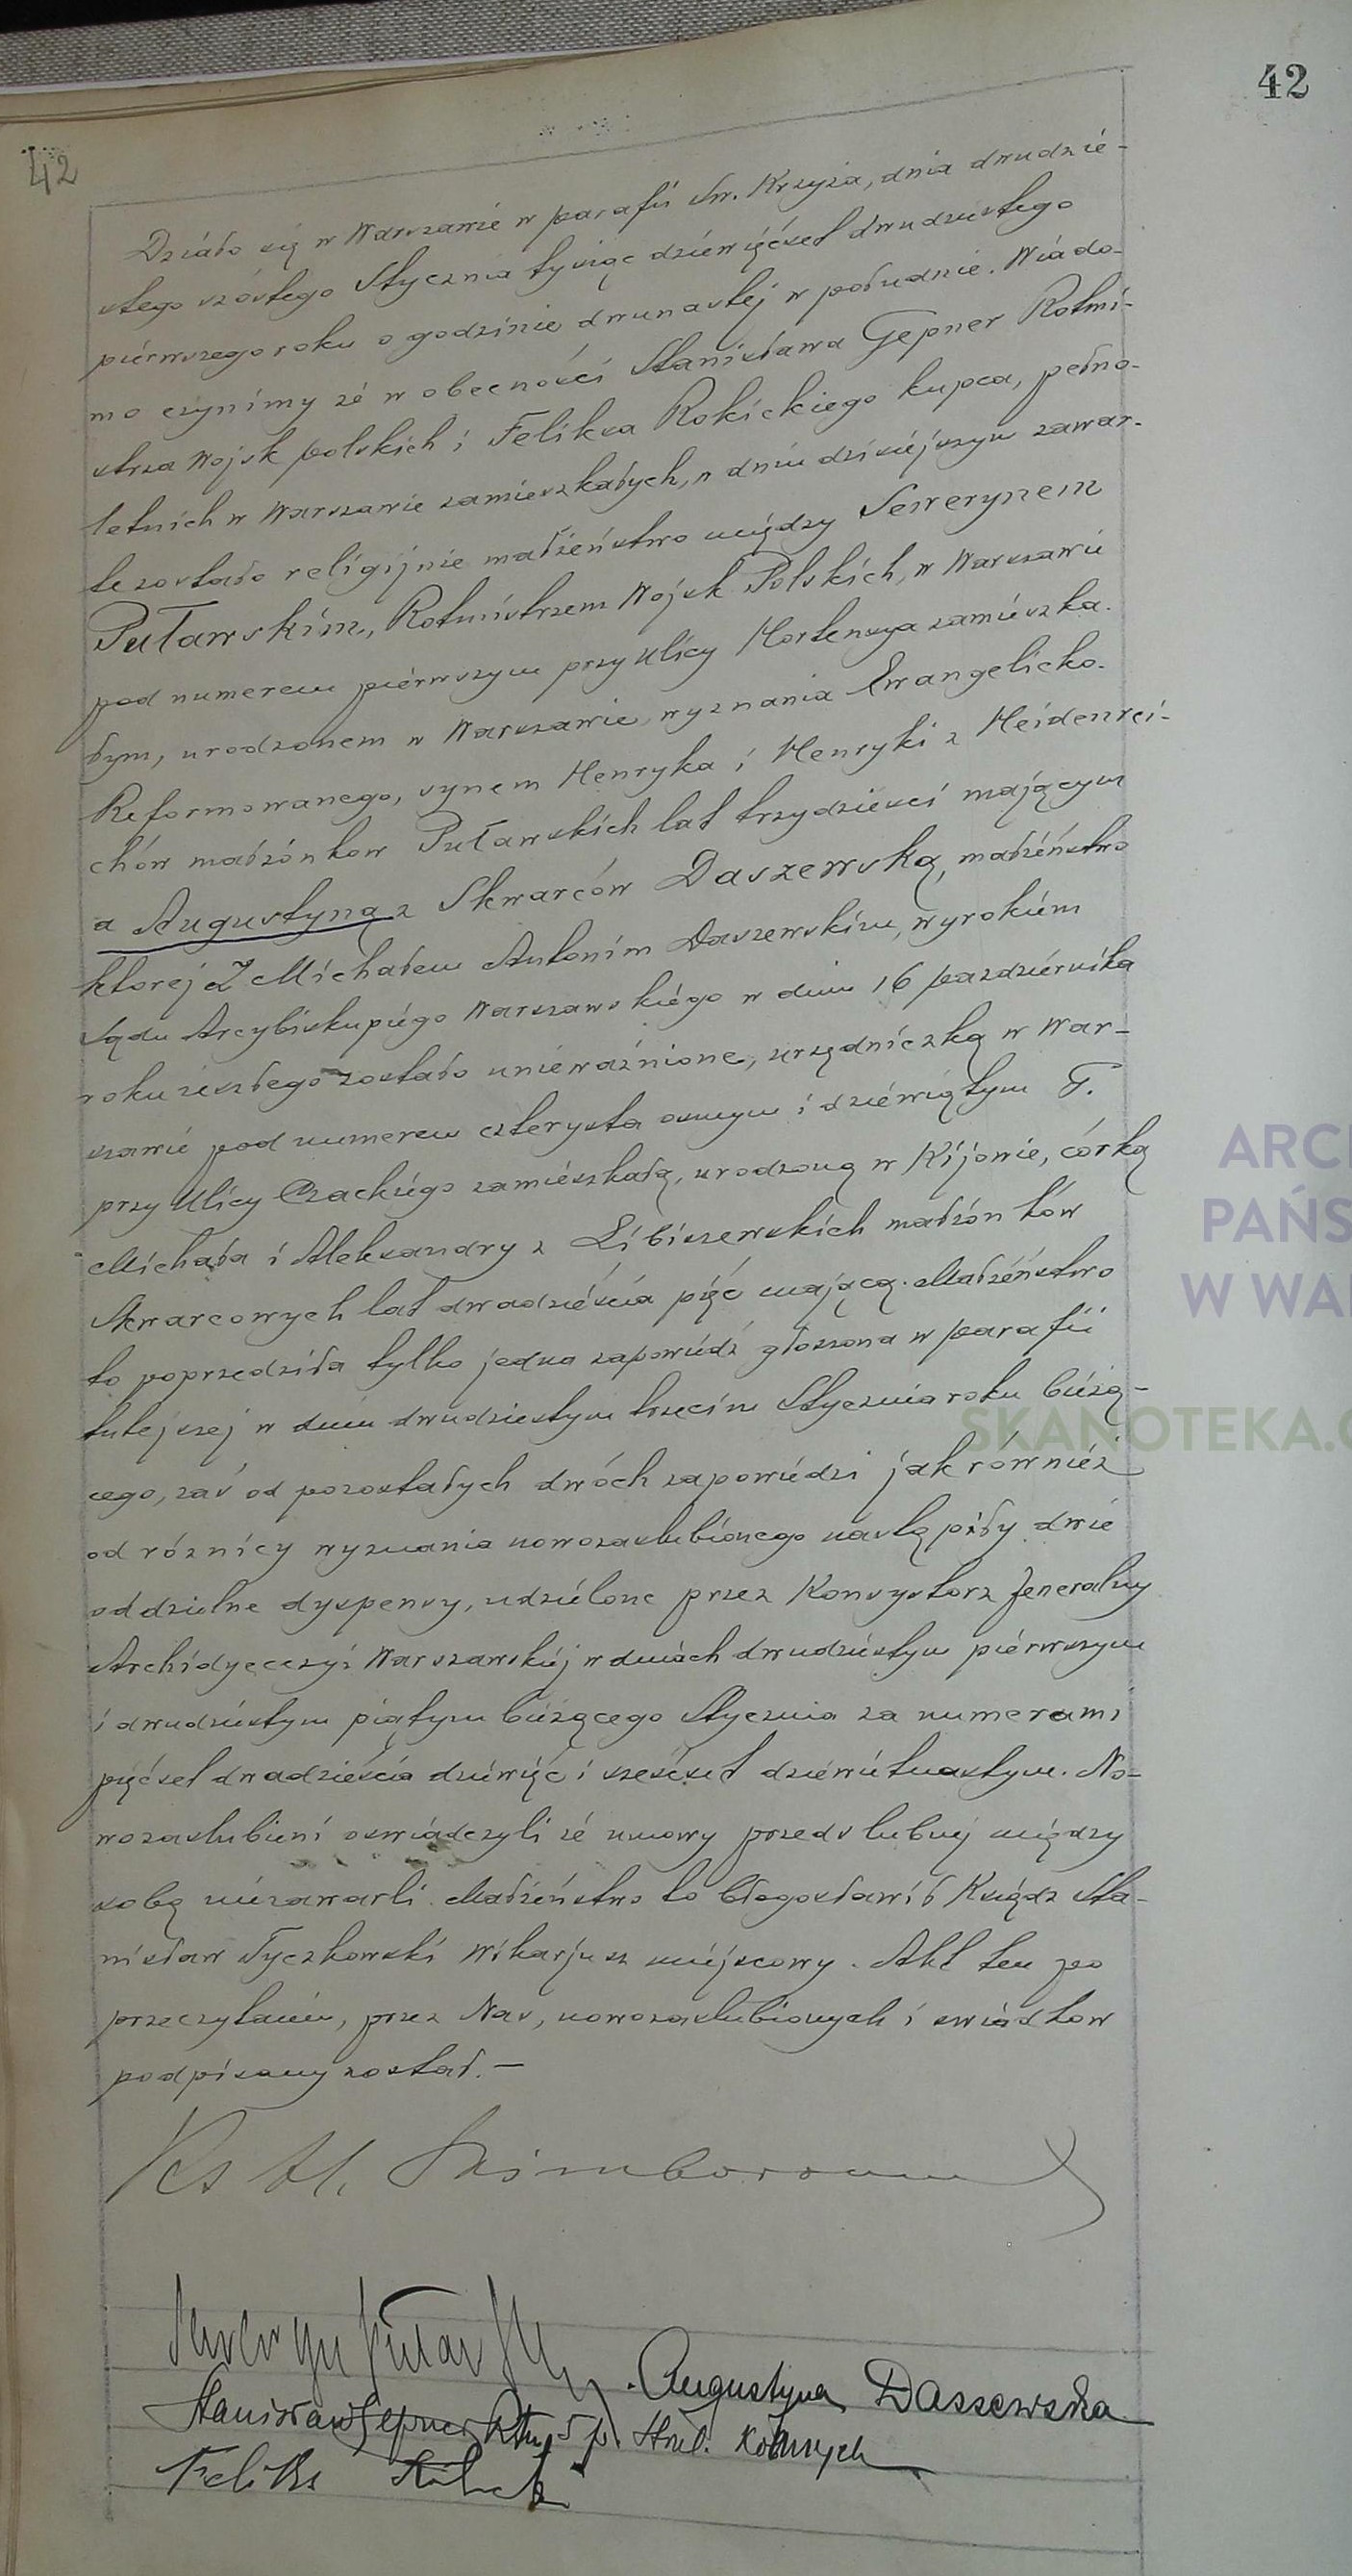 42
42
Działo się w Warszawie w parafii Św. Krzyża, dnia dwudzie-
stego szóstego Stycznia tysiąc dziewięćset dwudziestego
pierwszego roku o godzinie dwunastej w południe. Wiado-
mo czynimy że w obecności Stanisława Gepner Rotmi-
strza Wojsk polskich i Feliksa Rokickiego kupca, pełno-
letnich w Warszawie zamieszkałych, w dniu dzisiejszym zawar-
te zostało religijnie małżeństwo między Sewerynem
Puławskim, Rotmistrzem Wojsk Polskich, w Warszawie
pod numerem pierwszym przy ulicy Hortensya zamieszka-
łym, urodzonem w Warszawie, wyznania Ewangelicko-
Reformowanego, synem Henryka i Henryki z Heidenrei-
chów małżonkow Puławskich lat trzydzieści mającym
a Augustyną z Skwarców Daszewską, małżeństwo
ktorej z Michałem Antonim Daszewskim, wyrokiem
Sądu Arcybiskupiego Warszawskiego w dniu 16 pazdziernika
roku zeszłego zostało unieważnione, urzędniczką w War-
szawie pod numerem czterysta osmym i dziewiątym F.
przy ulicy Czackiego zamieszkałą, urodzoną w Kijowie, córką
Michała i Aleksandry z Libiszewskich małżonków
Skwarcowych lat dwadzieścia pięć mającą. Małżeństwo
to poprzedziła tylko jedna zapowiedź głoszona w parafii
tutejszej w dniu dwudziestym trzecim Stycznia roku bieżą-
cego, zaś od pozostałych dwóch zapowiedzi jak również
od róznicy wyznania nowozaslubionego nastąpiły dwie
oddzielne dyspensy, udzielone przez Konsystorz Jeneralny
Archidyecezyi Warszawskiej w dniach dwudziestym pierwszym
i dwudziestym piątym bieżącego Stycznia za numerami
pięćset dwadzieścia dziewięć i sześćset dziewietnastym. No-
wozaslubieni oswiadczyli że umowy przedslubnej między
sobą niezawarli. Małżeństwo to błogosławił Ksiądz Sta-
nisław Tyczkowski Wikarjusz miejscowy. Akt ten po
przeczytaniu, przez Nas, nowozaslubionych i swiadkow
podpisany został. —
Ks
Seweryn Puławski
Augustyna Daszewska
Stanisław Gepner Rtm 5 p. Strzel. Konnych
Feliks
ARC
PAŃS
W WA
SKANOTEKA.